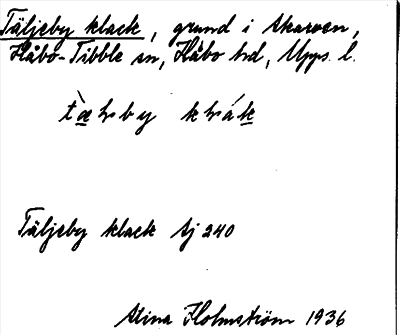 Täljeby klack, grund i Skarven,
Håbo-Tibble sn, Håbo hd, Upps. l.
Täljeby klack Sj 240
Stina Holmström 1936